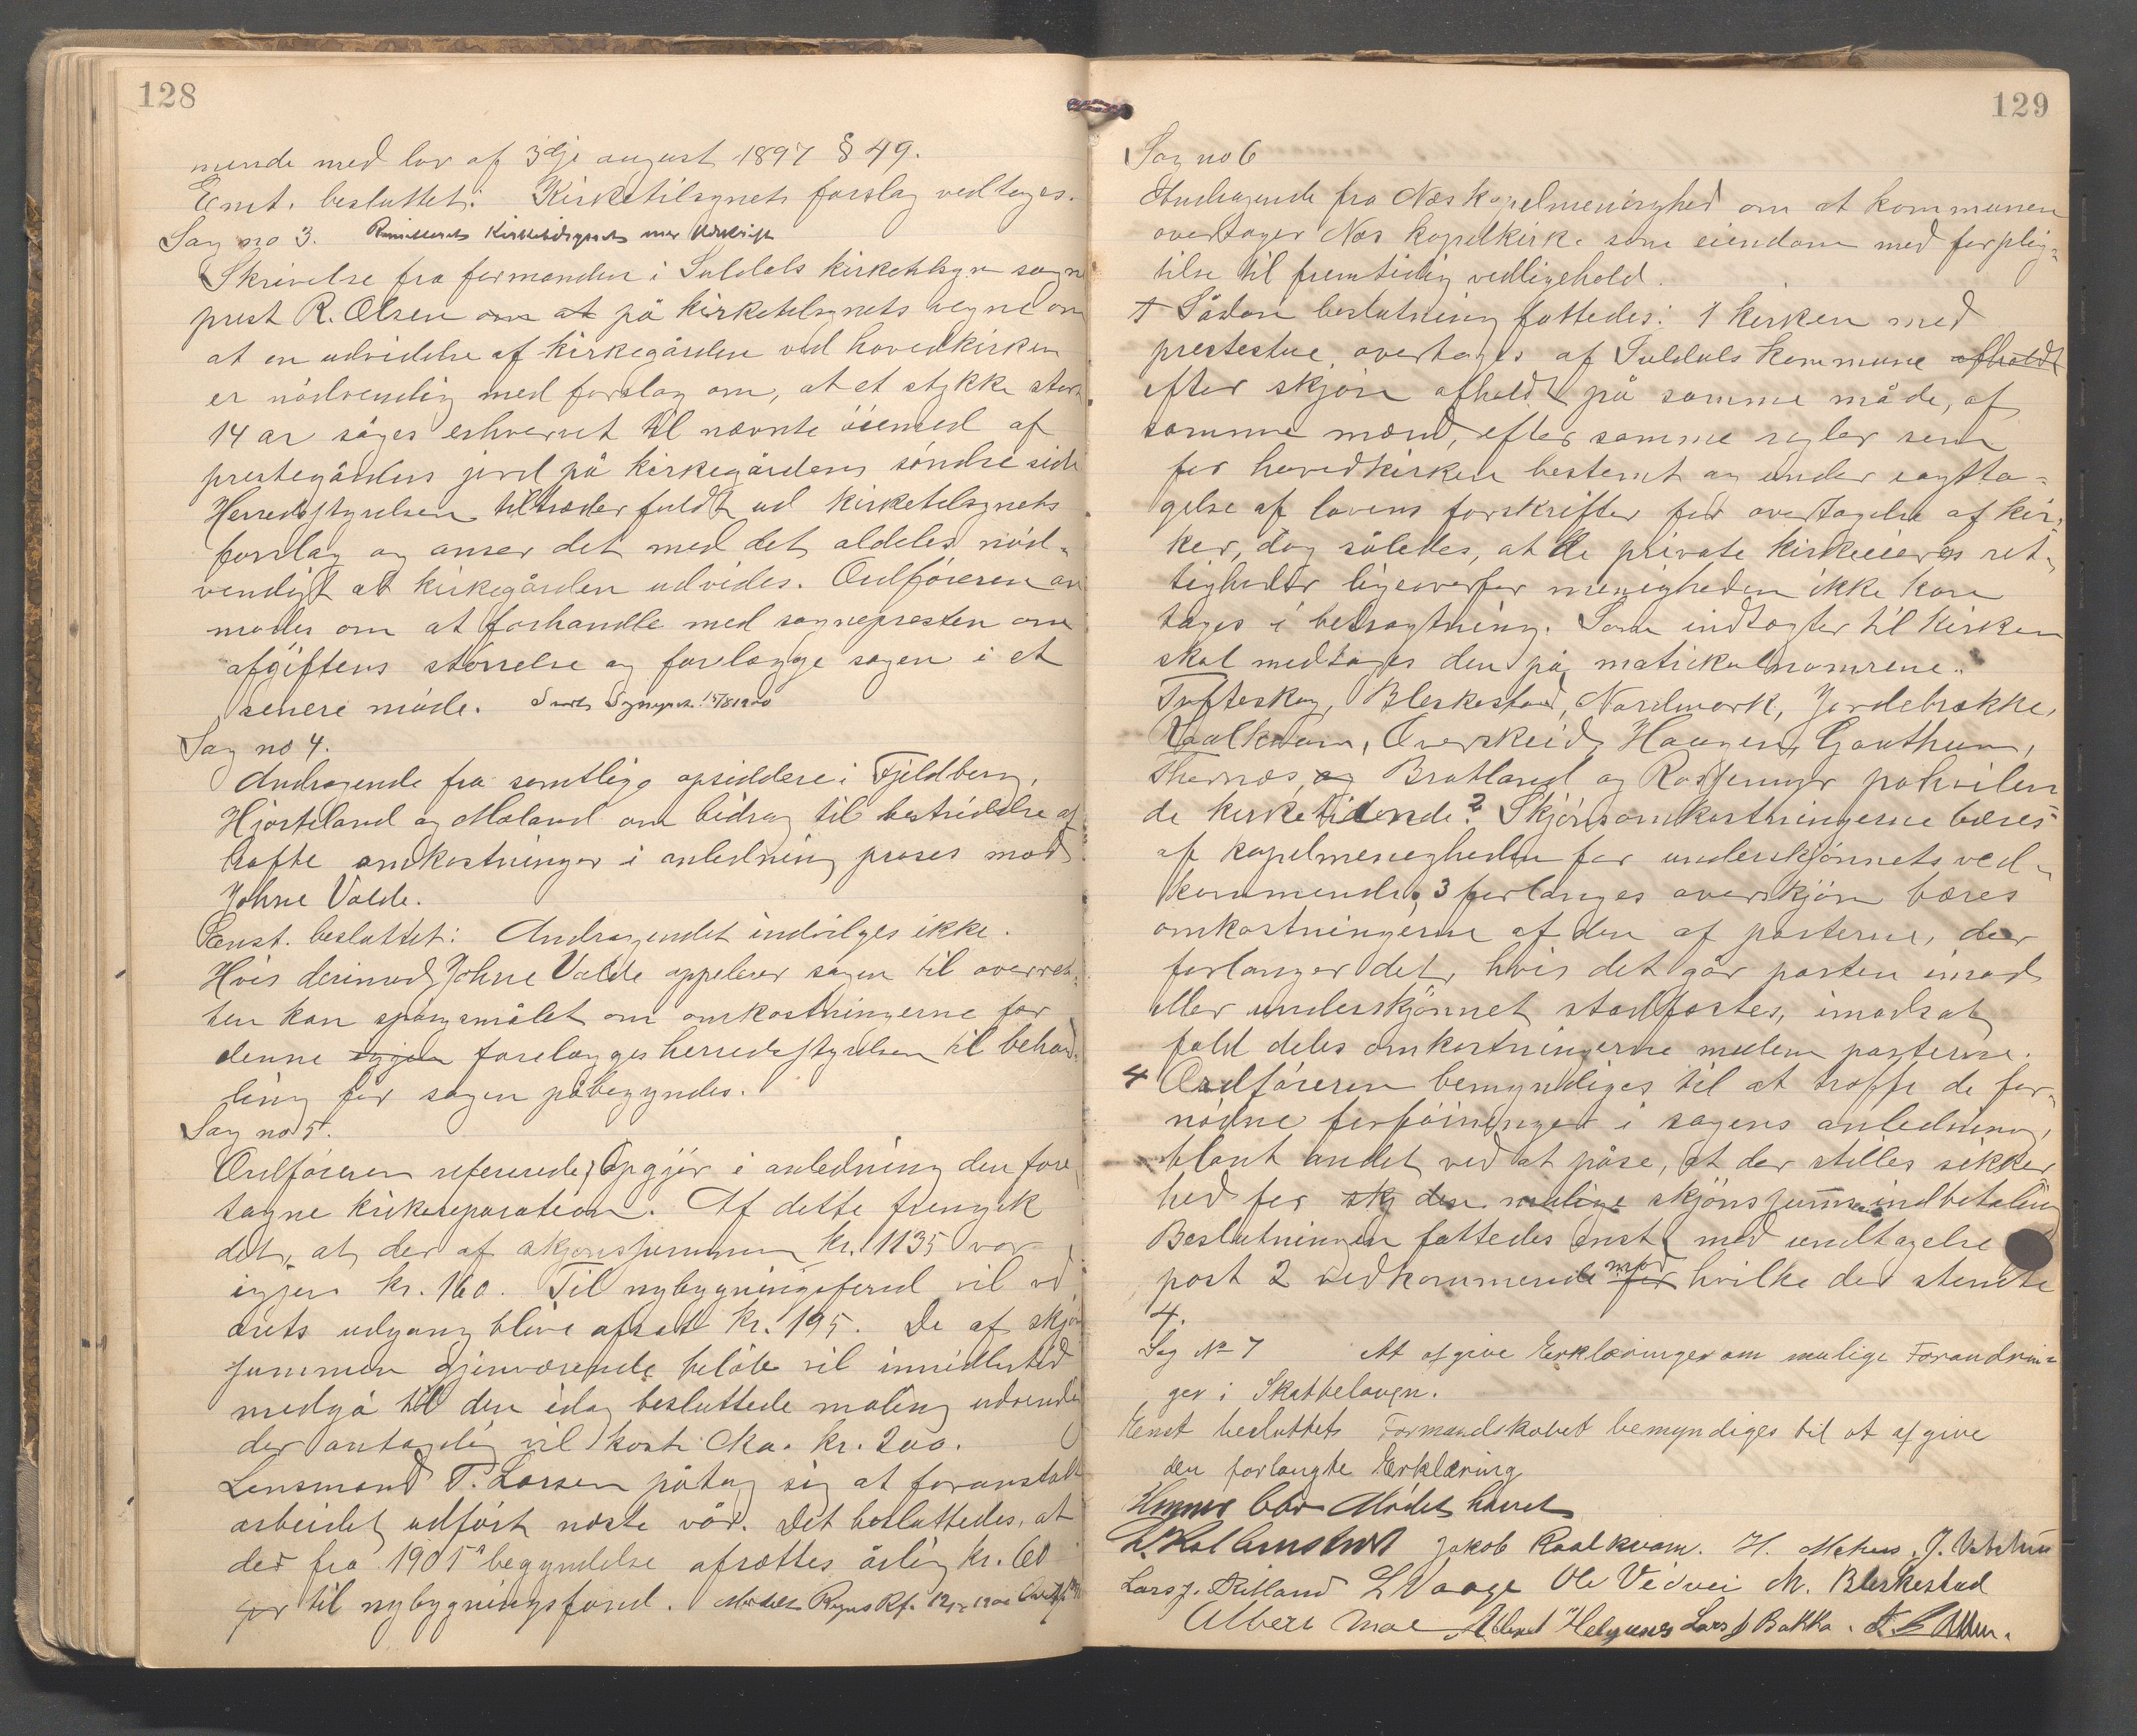 128
mende med lov af 3dje august 1897 § 49.
Enst. besluttet: Kirketilsynets forslag vedtages.
Sag no 3. Kirketilsynets mer Udskrift
Skrivelse fra formanden i Suldals kirketilsyn sogne
prest R. Olsen om at på kirketilsynets vegne om
at en udvidelse af kirkegården ved hovedkirken
er nödvendig med forslag om, at et stykke stort
14 ar söges erhvervet til nævnte öiemed af
prestegårdens jord på kirkegårdens söndre side
Herredsstyrelsen tiltræder fuldt ud kirketilsynets
forslag og anser det med det aldeles nöd-
vendigt at kirkegården udvides. Ordföreren an
modes om at forhandle med sognepresten om
afgiftens störrelse og forelægge sagen i et
senere möde. Sendt Sognepr. 15/8 1900
Sag no 4.
Andragende fra samtlige opsiddere i Fjeldberg,
Hjorteland og Moland om bidrag til bestridelse af
hafte omkostninger i anledning proses mod
Johne Valde.
Enst. besluttet: Andragendet indvilges ikke.
Hvis derimod Johne Valde appelerer sagen til overret-
ten kan spörgsmålet om omkostningerne for
denne igjen forelægges herredsstyrelsen til behand-
ling för sagen påbegyndes.
Sag no 5.
Ordföreren refererede Opgjör i anledning den fore
tagne kirkereparation. Af dette fremgik
det, at der af skjönssummen kr. 1135 var
igjen kr. 160. Til nybygningsfond vil ved
årets udgang blive afsat kr. 195. De af skjöns
summen gjenværende beløb vil imidlertid
medgå til den idag besluttede maling udvendig
der antagelig vil koste cka. kr. 200.
Lensmand T. Larsen påtog sig at foranstalte
arbeidet udfört næste vår. Det besluttedes, at
der fra 1901s begyndelse afsættes årlig kr. 60
til nybygningsfond.
129
Sag no 6
Andragende fra Næs kapelmenighed om at kommunen
overtager Næs kapelkirke som eiendom med forplig-
telse til fremtidig vedligehold.
Sådan beslutning fattedes: 1 kirken med
prestestue overtages af Suldals kommune afholdt
efter skjön afholdt på samme måde, af
samme mænd, efter samme regler som
for hovedkirken bestemt og under iagtta-
gelse af lovens forskrifter for overtagelse af kir-
ker, dog således, at de private kirkeeieres ret-
tigheder ligeoverfor menigheden ikke kan
tages i betragtning. Som indtægter til kirken
skal medtages den på matrikulnumrene
Tufteskog, Bleskestad, Nordmork, Jordebrække,
Roalkvam, Overskeid, Haugen, Gauthun,
Thornæs, og Bratland og Rossemyr pahvilen
de kirketidende. 2 Skjönsomkostningerne bæres
af kapelmenigheden for underskjönnets ved-
kommende, 3 forlanges overskjön bæres
omkostningerne af den af parterne, der
forlanger det, hvis det går parten imod
eller underskjönnet stadfæstes, imodsat
fald deles omkostningerne mellem parterne.
4 Ordföreren bemyndiges til at træffe de for-
nödne forföininger i sagens anledning,
blant andet ved at påse, at der stilles sikker
hed for skj den mulige skjönssummes indbetaling
Beslutningen fattedes enst. med undtagelse
post 2 vedkommende for mod hvilke der stemte
4.
Sag No 7 At afgive Erklæringer om mulige Forandrin-
ger i Skatteloven.
Enst besluttet Formandskabet bemyndiges til at afgive
den forlangte Erklæring
Hermed blev Mødet hævet
Jakob Roalkvam. H. Mehus
L Vaage Ole Veivei M. Bleskestad
Albert Moe Helgenes Lars J Bakka.